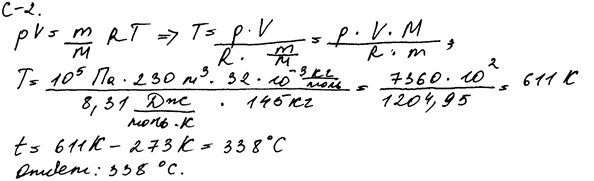 С-2.
pV = m/M RT => T = p · V / R · m/M = p · V · M / R · m ,
T = 10⁵ Па · 230 м³ · 32 · 10⁻³ кг/моль / 8,31 Дж/моль·К · 145 кг = 7360 · 10² / 1204,95 = 611 К
t = 611 К - 273 К = 338 °C
Ответ: 338 °C.